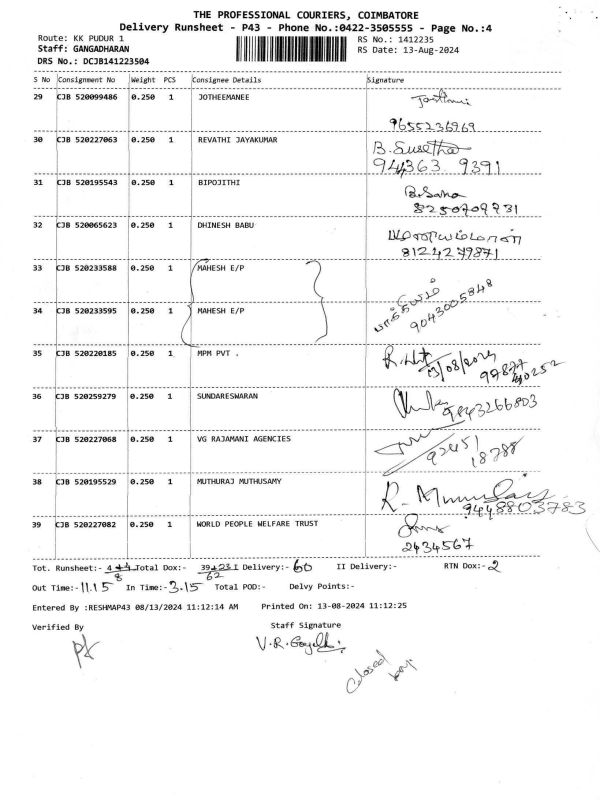 THE PROFESSIONAL COURIERS, COIMBATORE
Delivery Runsheet - P43 - Phone No.:0422-3505555 - Page No.:4
Route: KK PUDUR 1 RS No.: 1412235
Staff: GANGADHARAN RS Date: 13-Aug-2024
DRS No.: DCJB141223504
S No Consignment No Weight PCS Consignee Details Signature
29 CJB 520099486 0.250 1 JOTHEEMANEE
9655236969
30 CJB 520227063 0.250 1 REVATHI JAYAKUMAR B. Susetha
94363 9391
31 CJB 520195543 0.250 1 BIPOJITHI B. Saha
8250709731
32 CJB 520065623 0.250 1 DHINESH BABU
8124279871
33 CJB 520233588 0.250 1 MAHESH E/P
34 CJB 520233595 0.250 1 MAHESH E/P பாக்கியம்
9043005848
35 CJB 520220185 0.250 1 MPM PVT .
13/08/2024
97877
40252
36 CJB 520259279 0.250 1 SUNDARESWARAN
9843266803
37 CJB 520227068 0.250 1 VG RAJAMANI AGENCIES
92451
18788
38 CJB 520195529 0.250 1 MUTHURAJ MUTHUSAMY
9448803783
39 CJB 520227082 0.250 1 WORLD PEOPLE WELFARE TRUST
2434567
Tot. Runsheet:- 4+4 Total Dox:- 39+23 I Delivery:- 60 II Delivery:- RTN Dox:- 2
8 62
Out Time:- 11.15 In Time:- 3.15 Total POD:- Delvy Points:-
Entered By :RESHMAP43 08/13/2024 11:12:14 AM Printed On: 13-08-2024 11:12:25
Verified By Staff Signature
closed